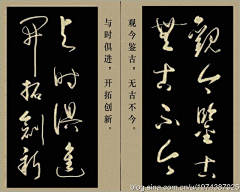 觀今鑒古
無古不今
观今鉴古，无古不今。
与时俱进，开拓创新。
与时俱進
開拓創新
blog.sina.com.cn/u/1074387025